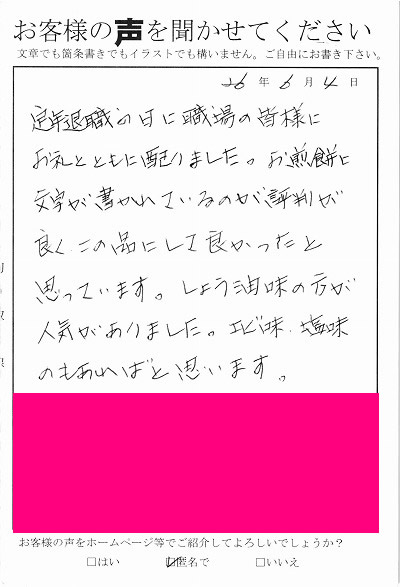 お客様の声を聞かせてください
文章でも箇条書きでもイラストでも構いません。ご自由にお書き下さい。
26年6月4日
定年退職の日に職場の皆様に
お礼とともに配りました。お煎餅に
文字が書かれているのが評判が
良くこの品にして良かったと
思っています。しょう油味の方が
人気がありました。エビ味、塩味
のもあればと思います。
お客様の声をホームページ等でご紹介してよろしいでしょうか?
□はい ☑匿名で □いいえ